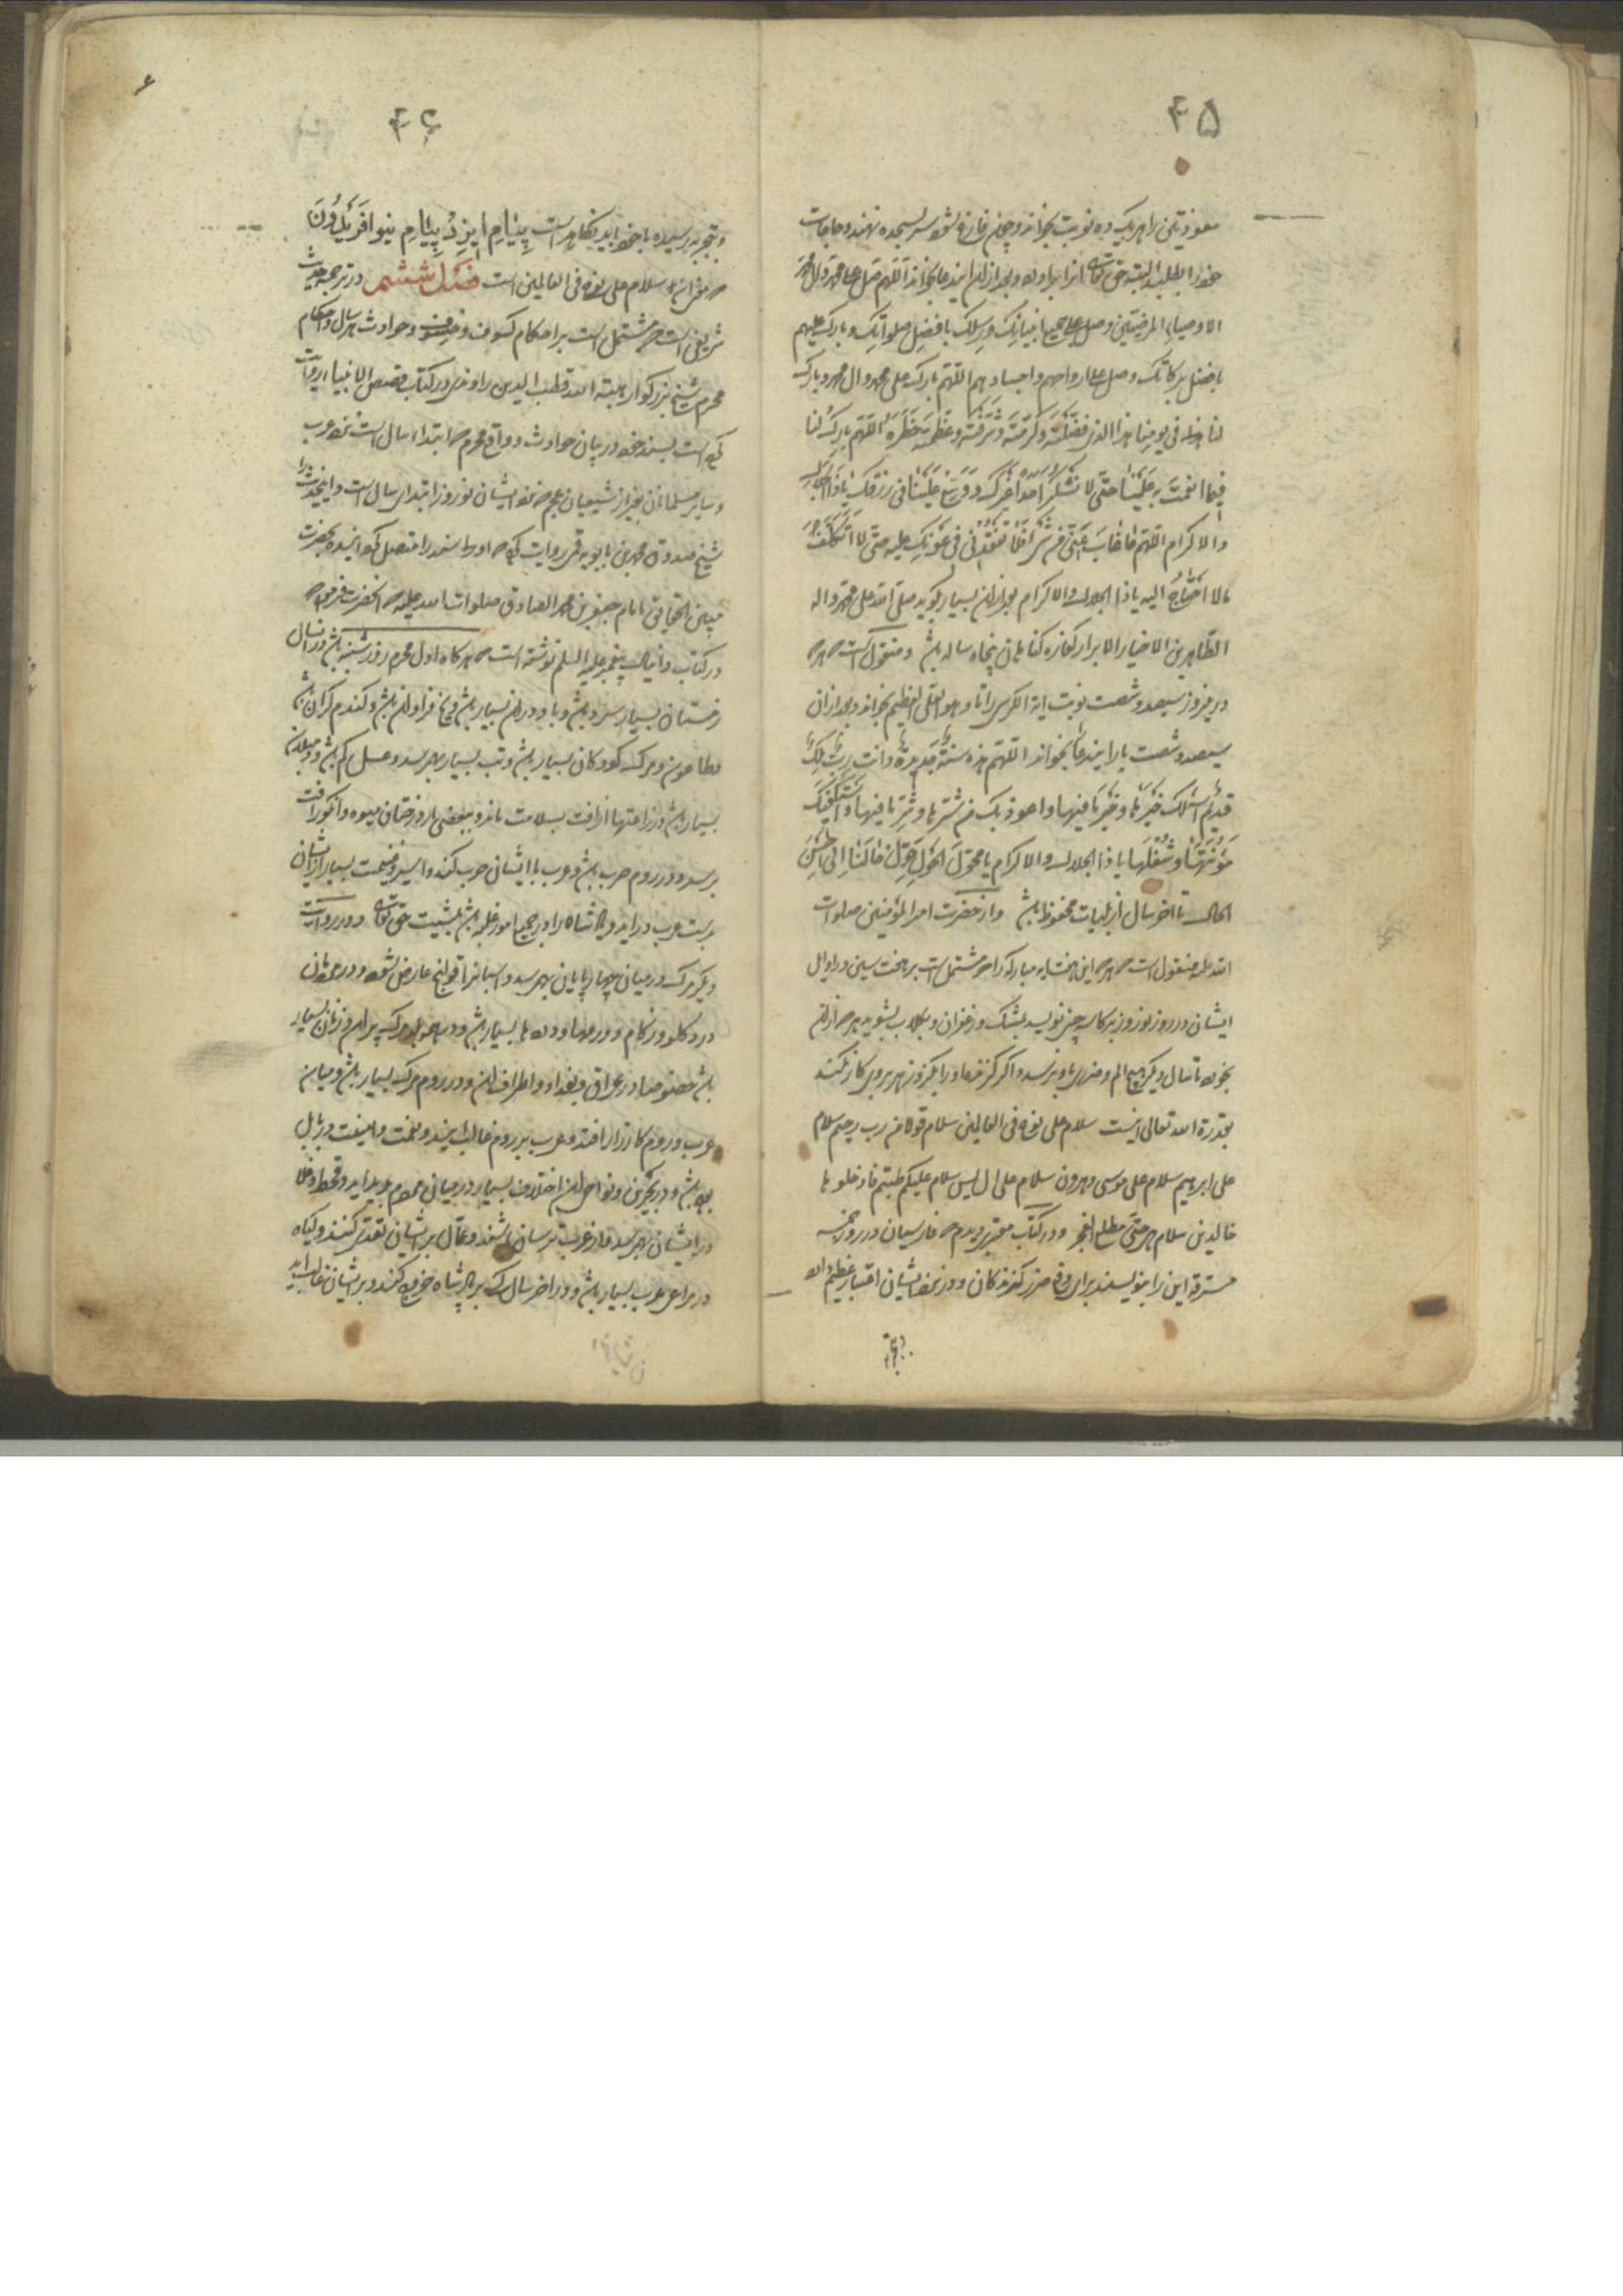 ۴۵
معوذتین را هر یک ده نوبت بخواند و چون فارغ شود سر بسجده نهند و حاجات
خود را بطلبد البته حق تعالی انرا براورد و بعد از ان این دعا بخواند اللهم صل علی محمد وال محمد
الاوصیاء المرضیین وصل علی جمیع انبیائک ورسلک بافضل صلواتک وبارک علیهم
بافضل برکاتک وصل علی ارواحهم واجسادهم اللهم بارک علی محمد وال محمد وبارک
لنا فی یومنا هذا الذی فضلته وکرمته وشرفته وعظمت خطره اللهم بارک لنا
فیما انعمت به علینا حتی لا نشکر احدا غیرک ووسع علینا فی رزقک یا ذا الجلال
والاکرام اللهم ما غاب عنی فلا تفقدنی عونک علیه حتی لا اتکلف
ما لا احتاج الیه یا ذا الجلال والاکرام بعد از ان بسیار بگوید صلی الله علی محمد واله
الطاهرین الاخیار الابرار کفاره کناهان پنجاه ساله باشد ومنقول است که هر که
در نیروز سیصد و شصت نوبت ایة الکرسی را تا وهو العلی العظیم بخواند و بعد از ان
سیصد و شصت بار این دعا بخواند اللهم هذه سنة جدیدة وانت رب ملک
قدیم اسئلک خیرها وخیر ما فیها واعوذ بک من شرها وشر ما فیها واستکفیک
مؤنتها وشغلها یا ذا الجلال والاکرام یا محول الحول حول حالنا الی احسن
الحال تا اخر سال از بلیات محفوظ باشد واز حضرت امیر المؤمنین صلوات
الله علیه منقول است که هر که این هفت ایه مبارکه را که مشتمل است بر هفت سین در اوایل
ایشان در روز نوروز بر کاسه چینی نویسد بمشک و زعفران و بکلاب بشوید هر که از ان
بخورد تا سال دیکر هیچ الم و ضرری باو نرسد و اکر کزنده او را بکزد زهر بر وی کار نکند
بقدرة الله تعالی اینست سلام علی نوح فی العالمین سلام قولا من رب رحیم سلام
علی ابرهیم سلام علی موسی وهرون سلام علی ال یس سلام علیکم طبتم فادخلوها
خالدین سلام هی حتی مطلع الفجر و در کتاب معتبری دیدم که فارسیان در روز خمسه
مسترقه این را بنویسند برای دفع ضرر کزندکان و در نزد ایشان اعتبار عظیم دارد
۴۶
و بتجربه رسیده با خود باید نکاه داشت بنام ایزد بنام نیو افریدون
که معنی ان سلام علی نوح فی العالمین است فصل ششم در ترجمه حدیث
شریفی است که مشتمل است بر احکام کسوف و خسوف و حوادث هر سال و احکام
محرم شیخ بزرکوار هبة الله قطب الدین راوندی در کتاب قصص الانبیا روایت
کرده است بسند خود در بیان حوادث و وقایع محرم که ابتداء سال است نزد عرب
و سایر مسلمانان بغیر از شیعیان عجم که نزد ایشان نوروز ابتدای سال است و این حدیث را
شیخ صدوق محمد بن بابویه قمی روایت کرده که او را سند را متصل کردانیده بحضرت
مبین الحقایق امام جعفر بن محمد الصادق صلوات الله علیه که انحضرت فرموده
در کتاب دانیال پیغمبر علیه السلام نوشته است که هرکاه اول محرم روز شنبه باشد در ان سال
زمستان بسیار سرد باشد و باد در ان بسیار باشد و یخ فراوان باشد و کندم کران باشد
و طاعون و مرک کودکان بسیار باشد و تب بسیار بهم رسد و عسل کم باشد و
بسیار باشد و زراعتها از افت بسلامت ماند و ببعضی از درختان میوه و انکور افت
برسد و در روم حرب باشد و عرب با ایشان حرب کنند و اسیر و غنیمت بسیار از ایشان
بدست عرب دراید و پادشاه را در جمیع امور غلبه باشد بمشیت حق تعالی و در روایت
دیکر مرک در میان چهارپایان بهم رسد و اسبان را قولنج عارض شود و در مردمان
درد کلو و زکام و ورمها و دردها بسیار باشد و در اهل جبل مرک پیران و زنان بسیار
باشد خصوصا در عراق و بغداد و اطراف ان و در روم مرک بسیار باشد و میان
عرب و روم کارزار افتد و عرب بر روم غالب ایند و نعمت و امنیت در بابل
بوده باشد و در بحرین و نواحی ان اختلاف بسیار در میان مردم پدید اید و قحط و غلا
در ایشان بهم رسد و از عرب ترسان باشند و عمال بر ایشان تعدی کنند و کیاه
در مراعی عرب بسیار باشد و در اخر سال کسی بر پادشاه خروج کند و بر ایشان غالب اید